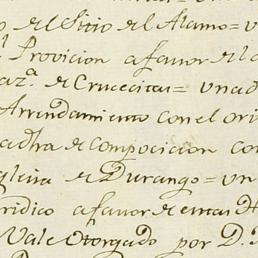 o del Sitio del Alamo = u
l Provicion a favor de la
az.ª de Crucecitas = una d
Arrendamiento con el ori
adha de composicion con
glesia de Durango = un
ridico a favor de estas H
Vale Otorgado por D.